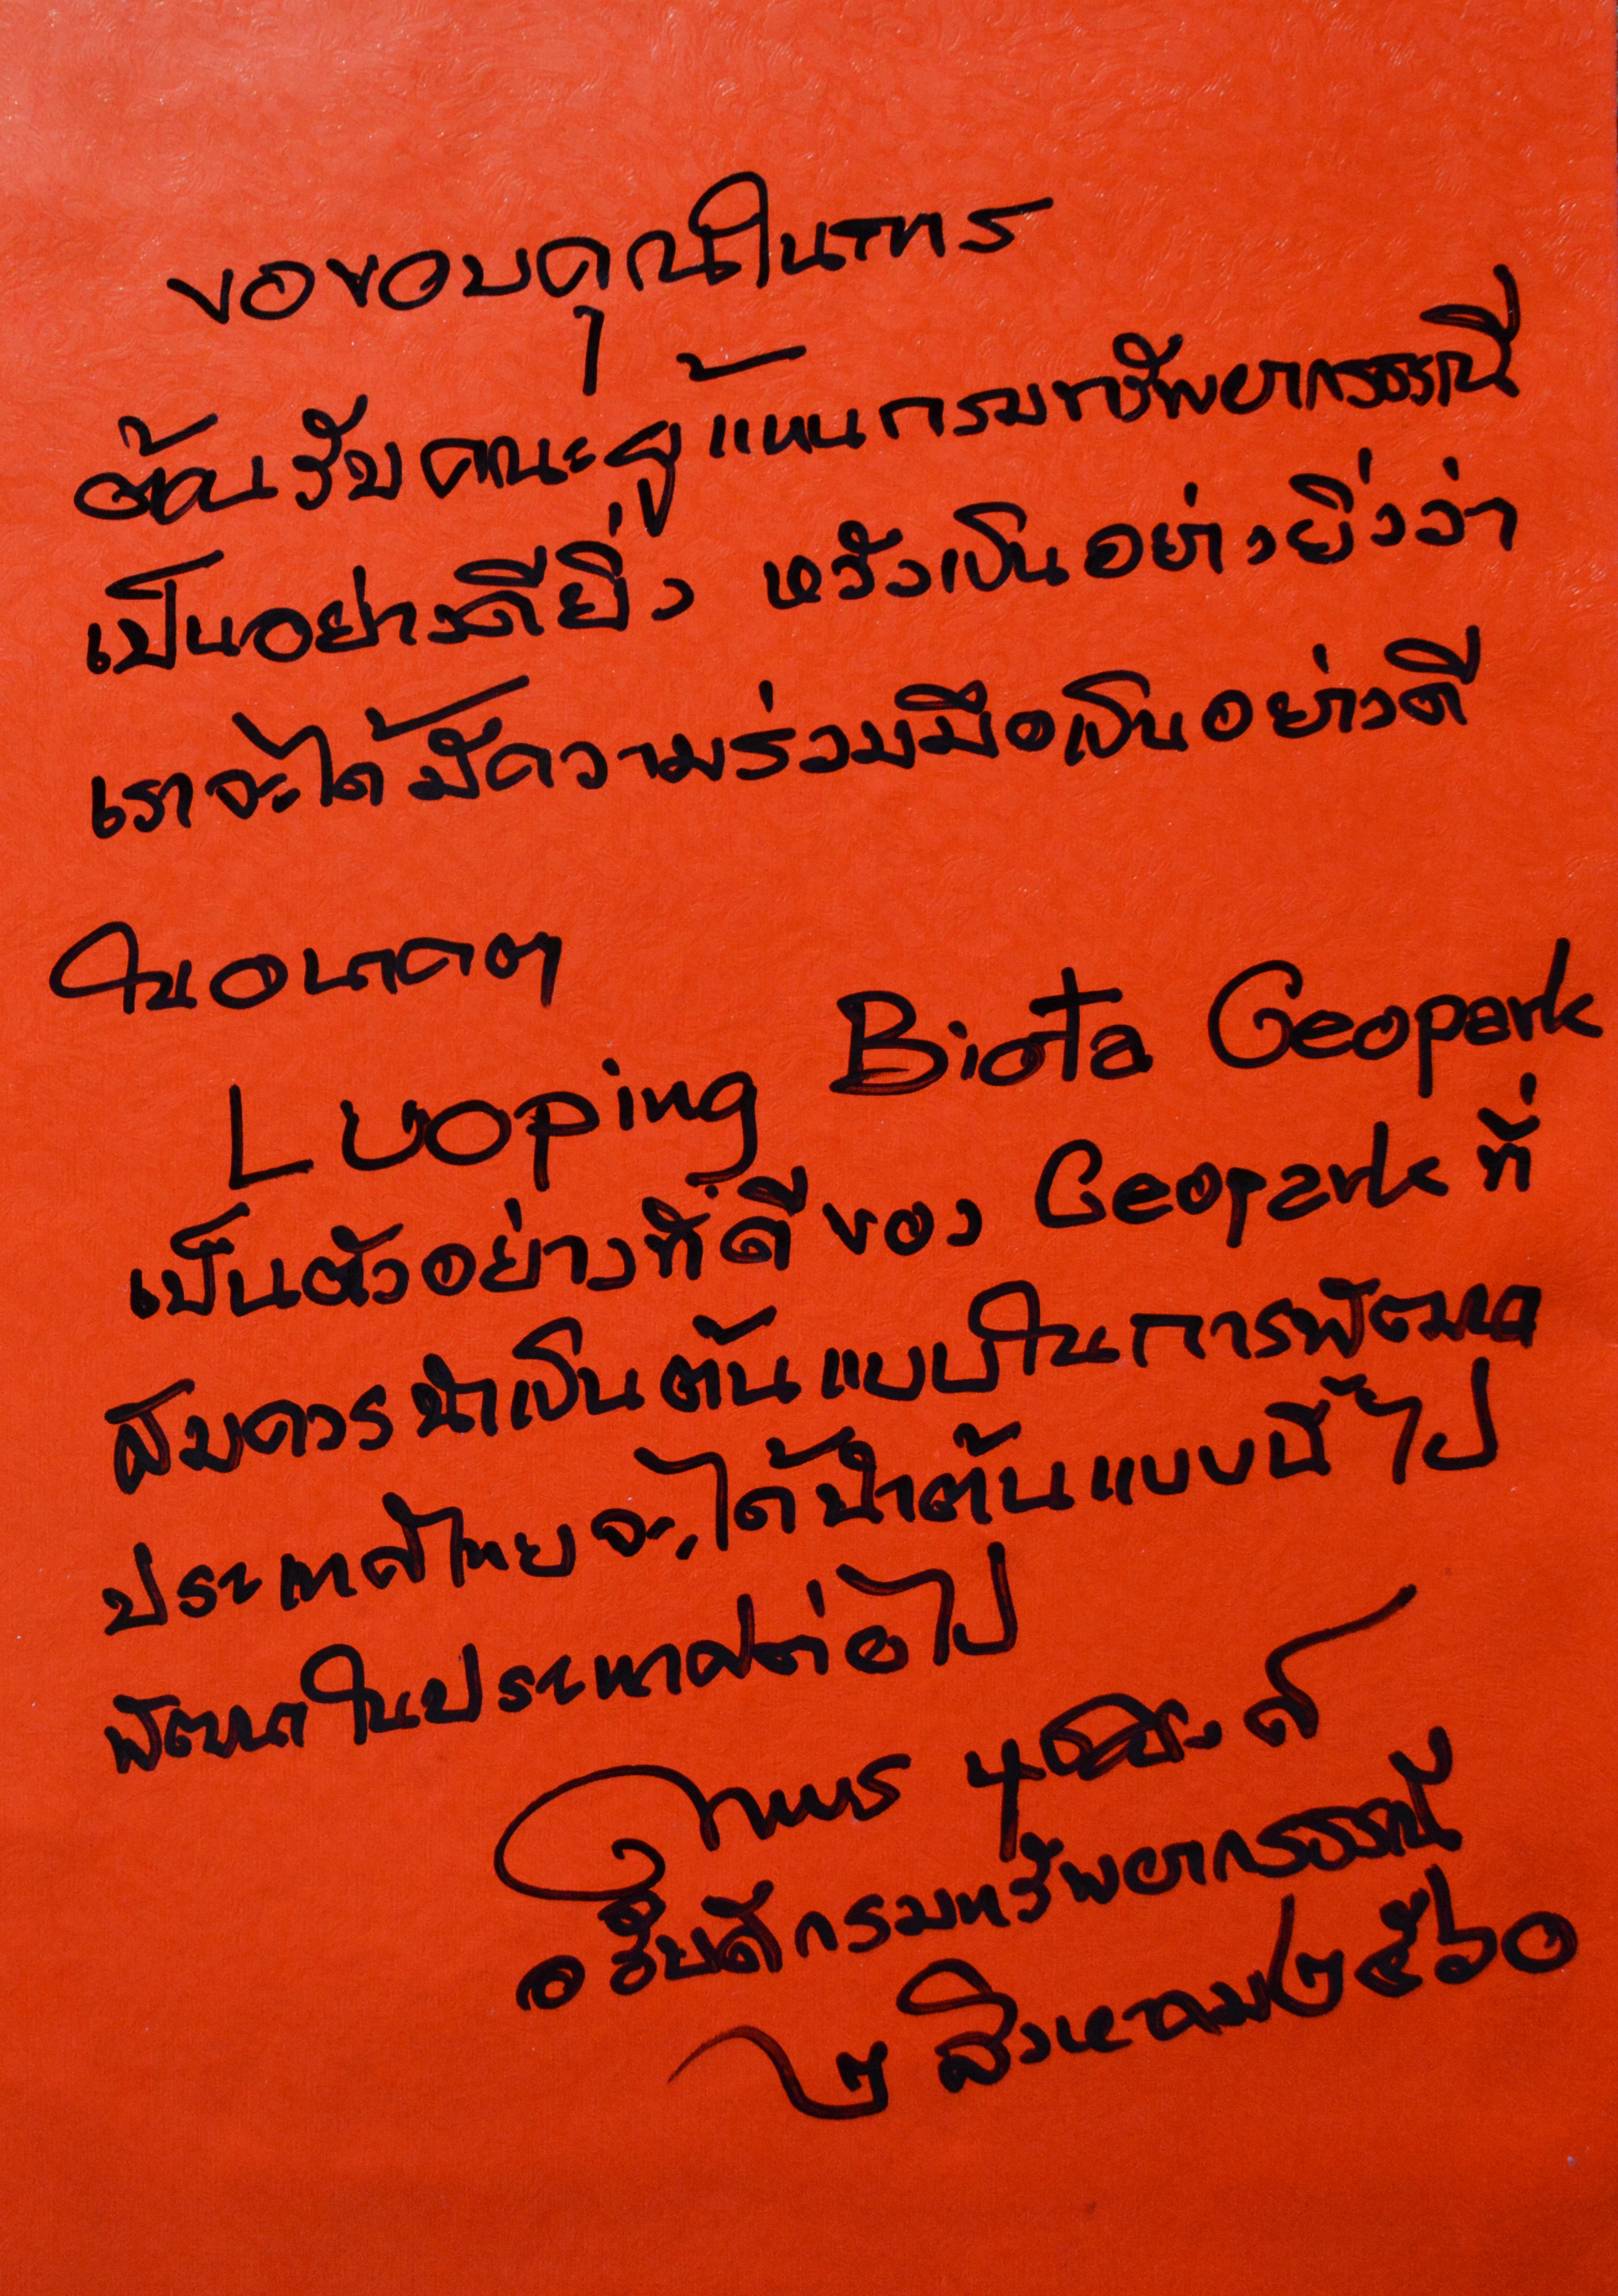 ขอขอบคุณในการ
ต้อนรับคณะผู้แทนกรมทรัพยากรธรณี
เป็นอย่างดียิ่ง หวังเป็นอย่างยิ่งว่า
เราจะได้มีความร่วมมือเป็นอย่างดี
ในอนาคต
Luoping Biota Geopark
เป็นตัวอย่างที่ดีของ Geopark ที่
สมควรนำเป็นต้นแบบในการพัฒนา
ประเทศไทยจะได้นำต้นแบบนี้ไป
พัฒนาในประเทศต่อไป
อธิบดีกรมทรัพยากรธรณี
๒ สิงหาคม ๒๕๖๐